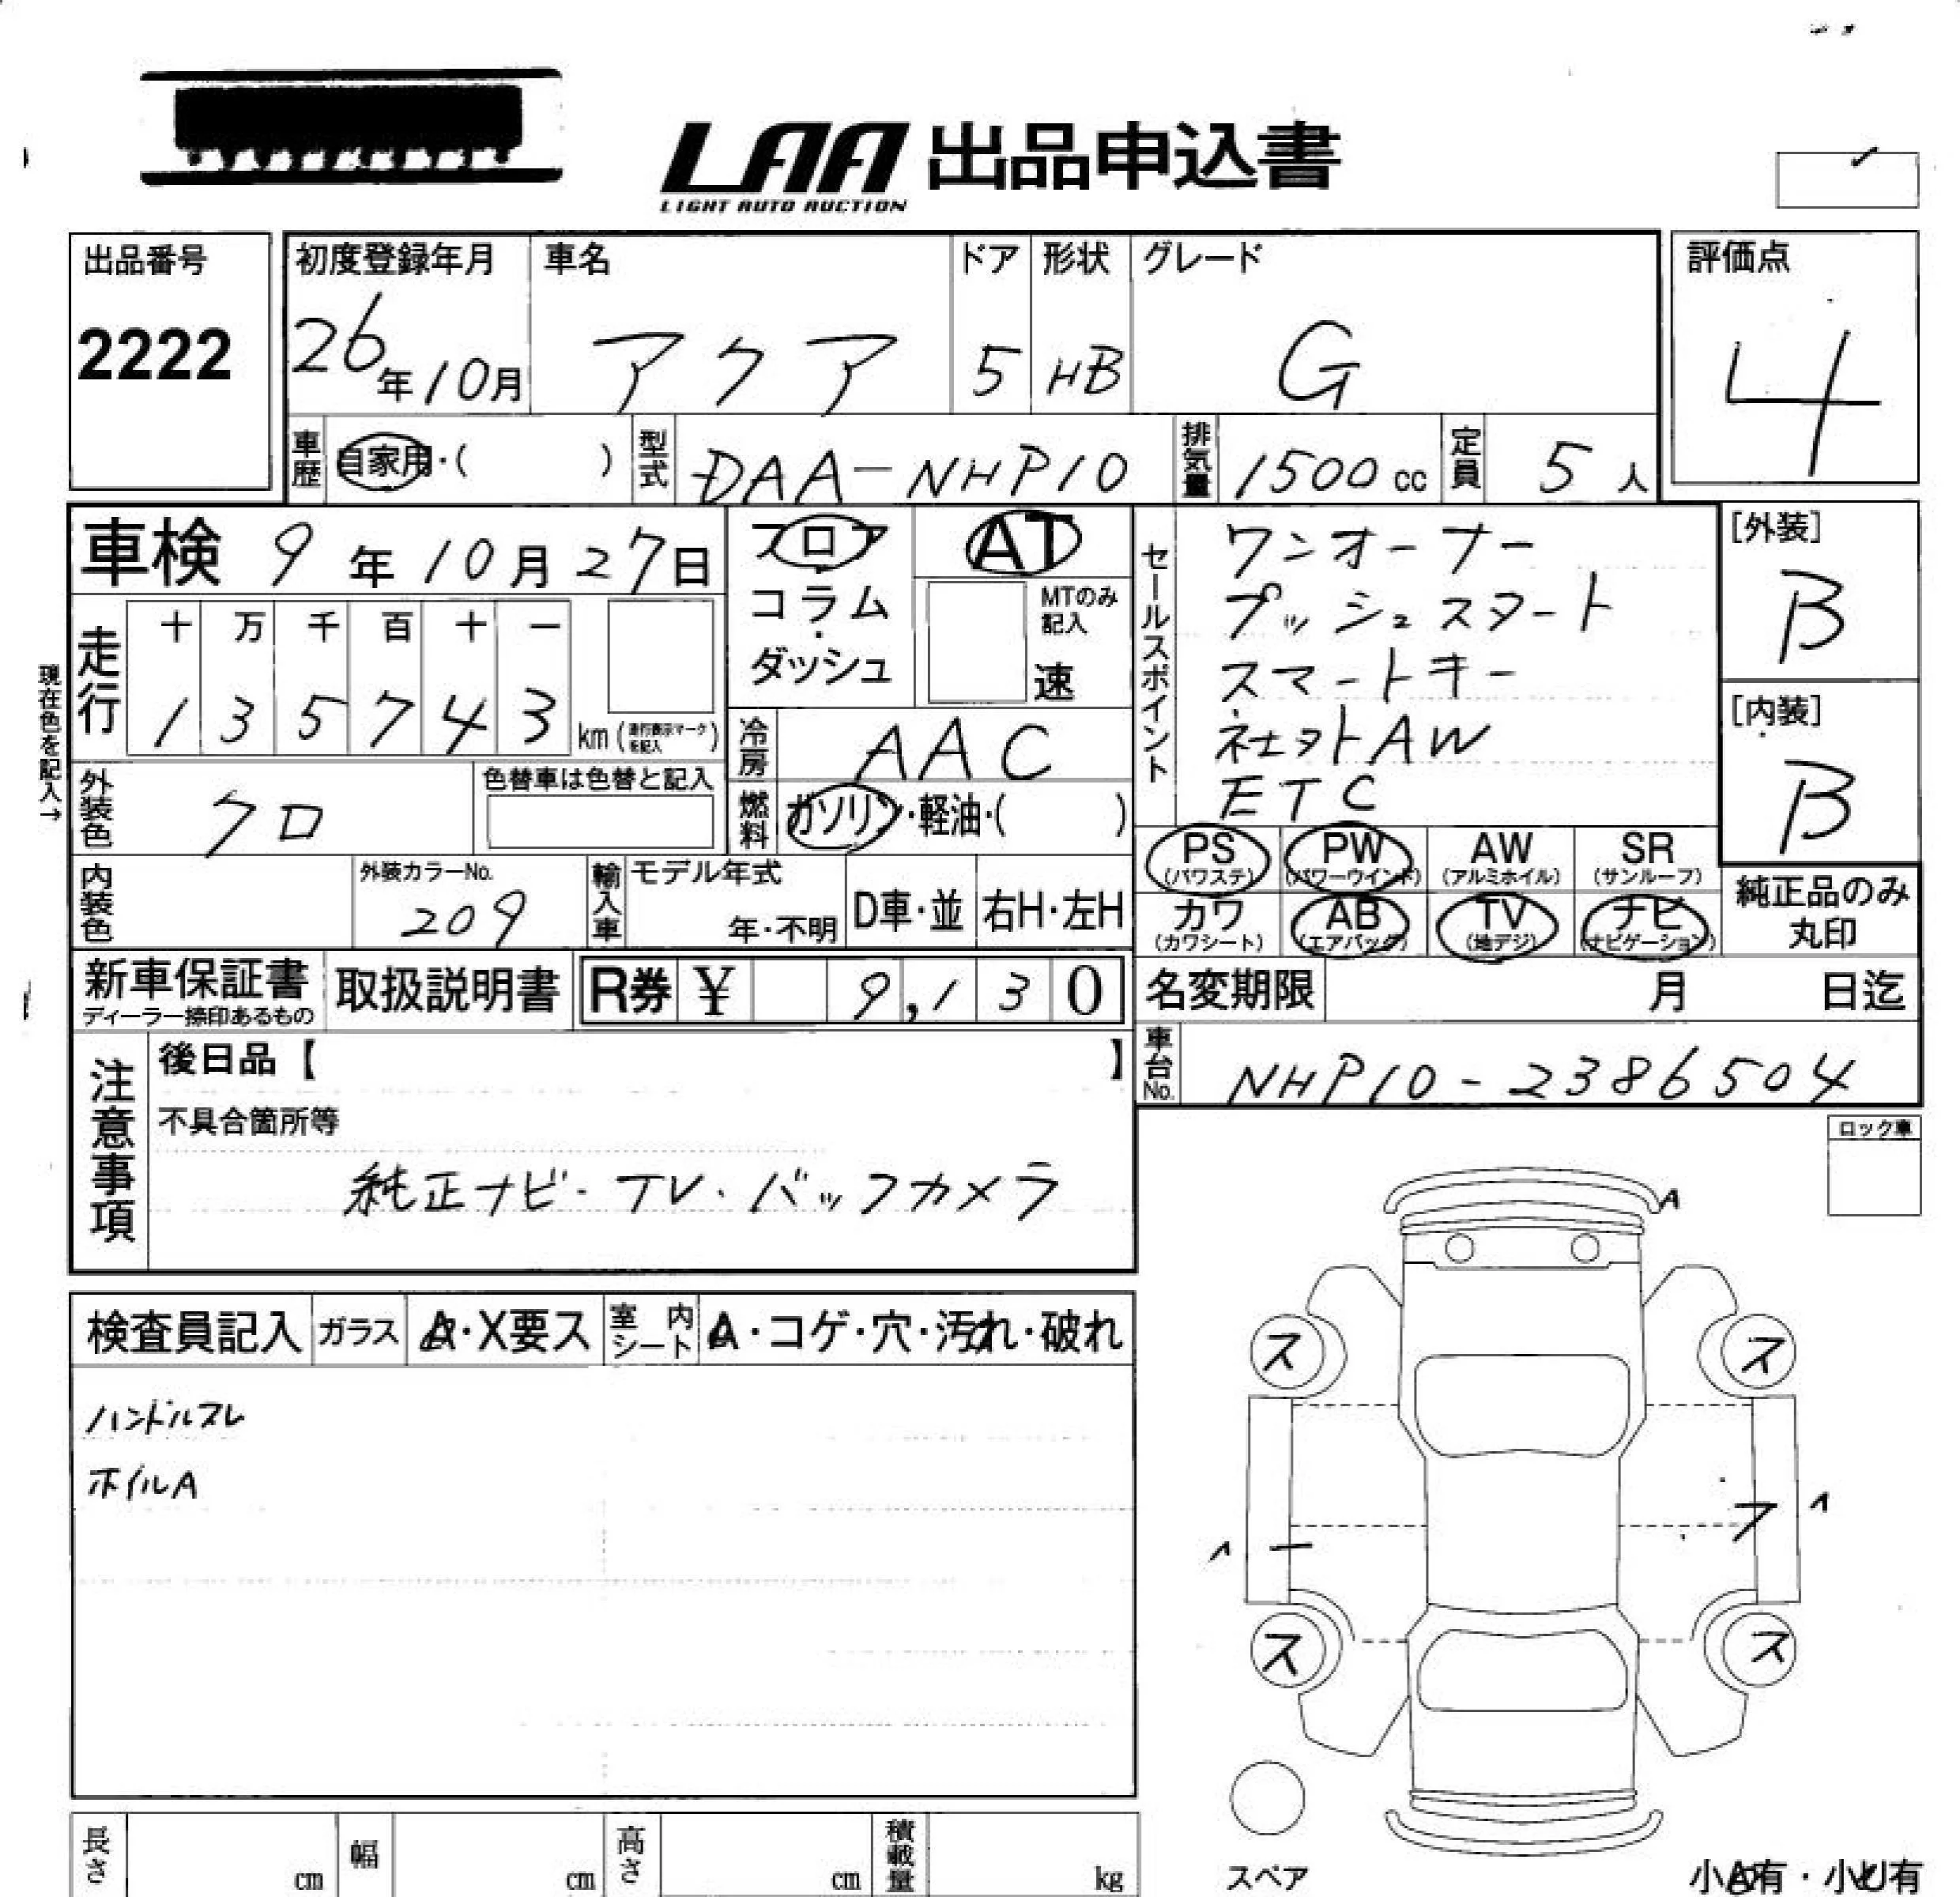 LAA 出品申込書
LIGHT AUTO AUCTION
出品番号
2222
初度登録年月
26年10月
車名
アクア
ドア
5
形状
HB
グレード
G
評価点
4
車歴 自家用・( )
型式 DAA-NHP10
排気量 1500cc
定員 5人
車検 9年10月27日
フロア
コラム
・
ダッシュ
AT
MTのみ
記入
速
現在色を記入→
走行
十 万 千 百 十 一
1 3 5 7 4 3 km(走行表示マークを記入)
冷房 AAC
外装色 クロ
色替車は色替と記入
燃料 ガソリン・軽油・( )
内装色
外装カラーNo.
209
輸入車
モデル年式
年・不明
D車・並
右H・左H
セールスポイント
ワンオーナー
プッシュスタート
スマートキー
社外AW
ETC
[外装]
B
[内装]
B
PS
(パワステ)
PW
(パワーウインド)
AW
(アルミホイル)
SR
(サンルーフ)
カワ
(カワシート)
AB
(エアバッグ)
TV
(地デジ)
ナビ
(ナビゲーション)
純正品のみ
丸印
新車保証書
ディーラー捺印あるもの
取扱説明書
R券 ¥ 9,130
名変期限 月 日迄
車台No. NHP10-2386504
注意事項
後日品【 】
不具合箇所等
純正ナビ・TV・バックカメラ
ロック車
検査員記入
ガラス A・X要ス
室内シート A・コゲ・穴・汚れ・破れ
ハンドルスレ
ホイルA
A
ス ス
ス ス
スペア
小A有・小U有
長さ cm
幅 cm
高さ cm
積載量 kg